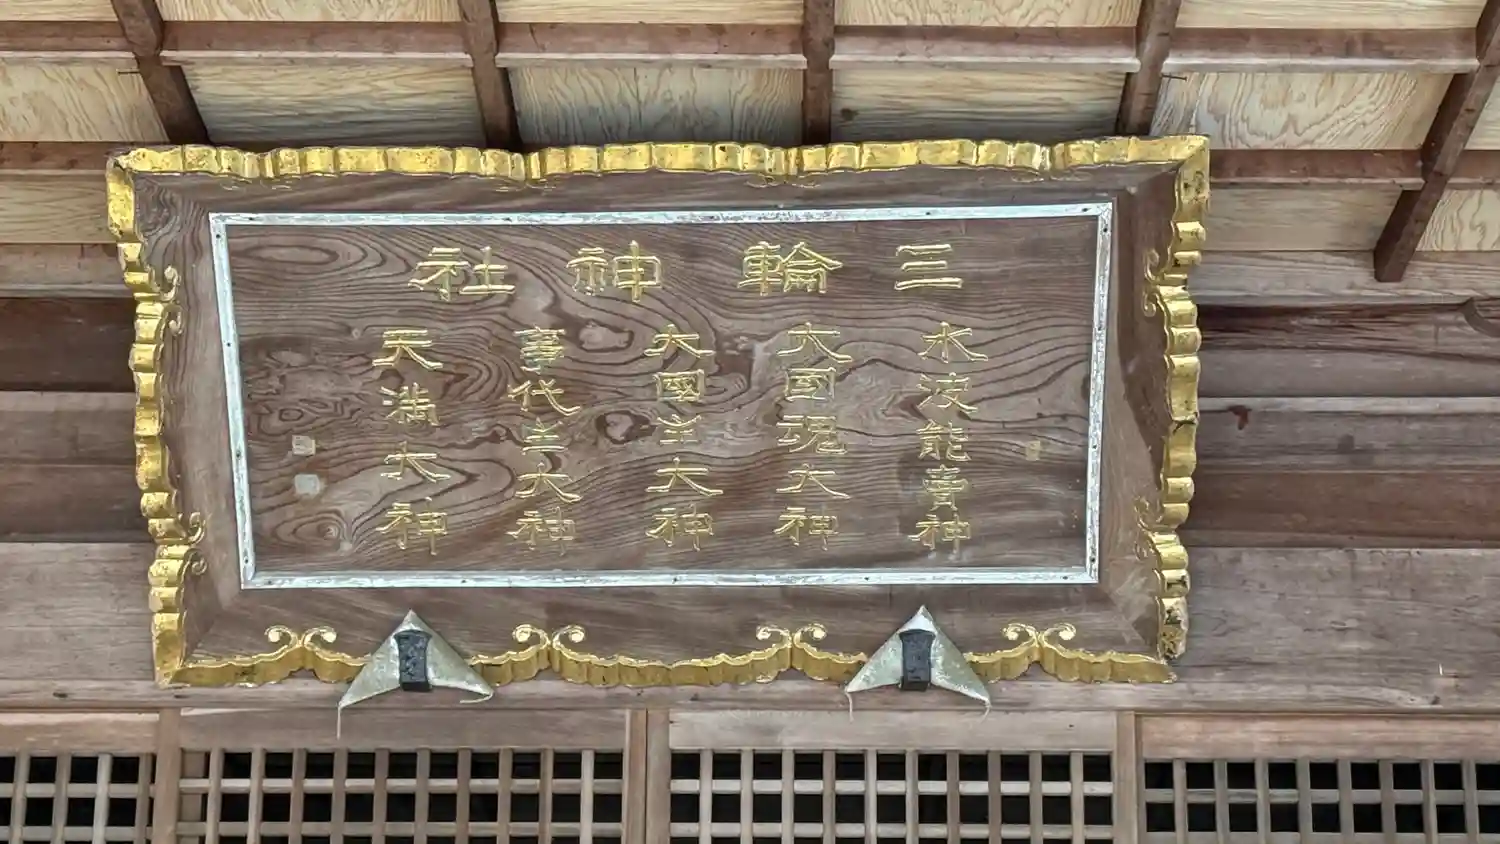 三輪神社
水波能賣神
大国魂大神
大國主大神
事代主大神
天満大神